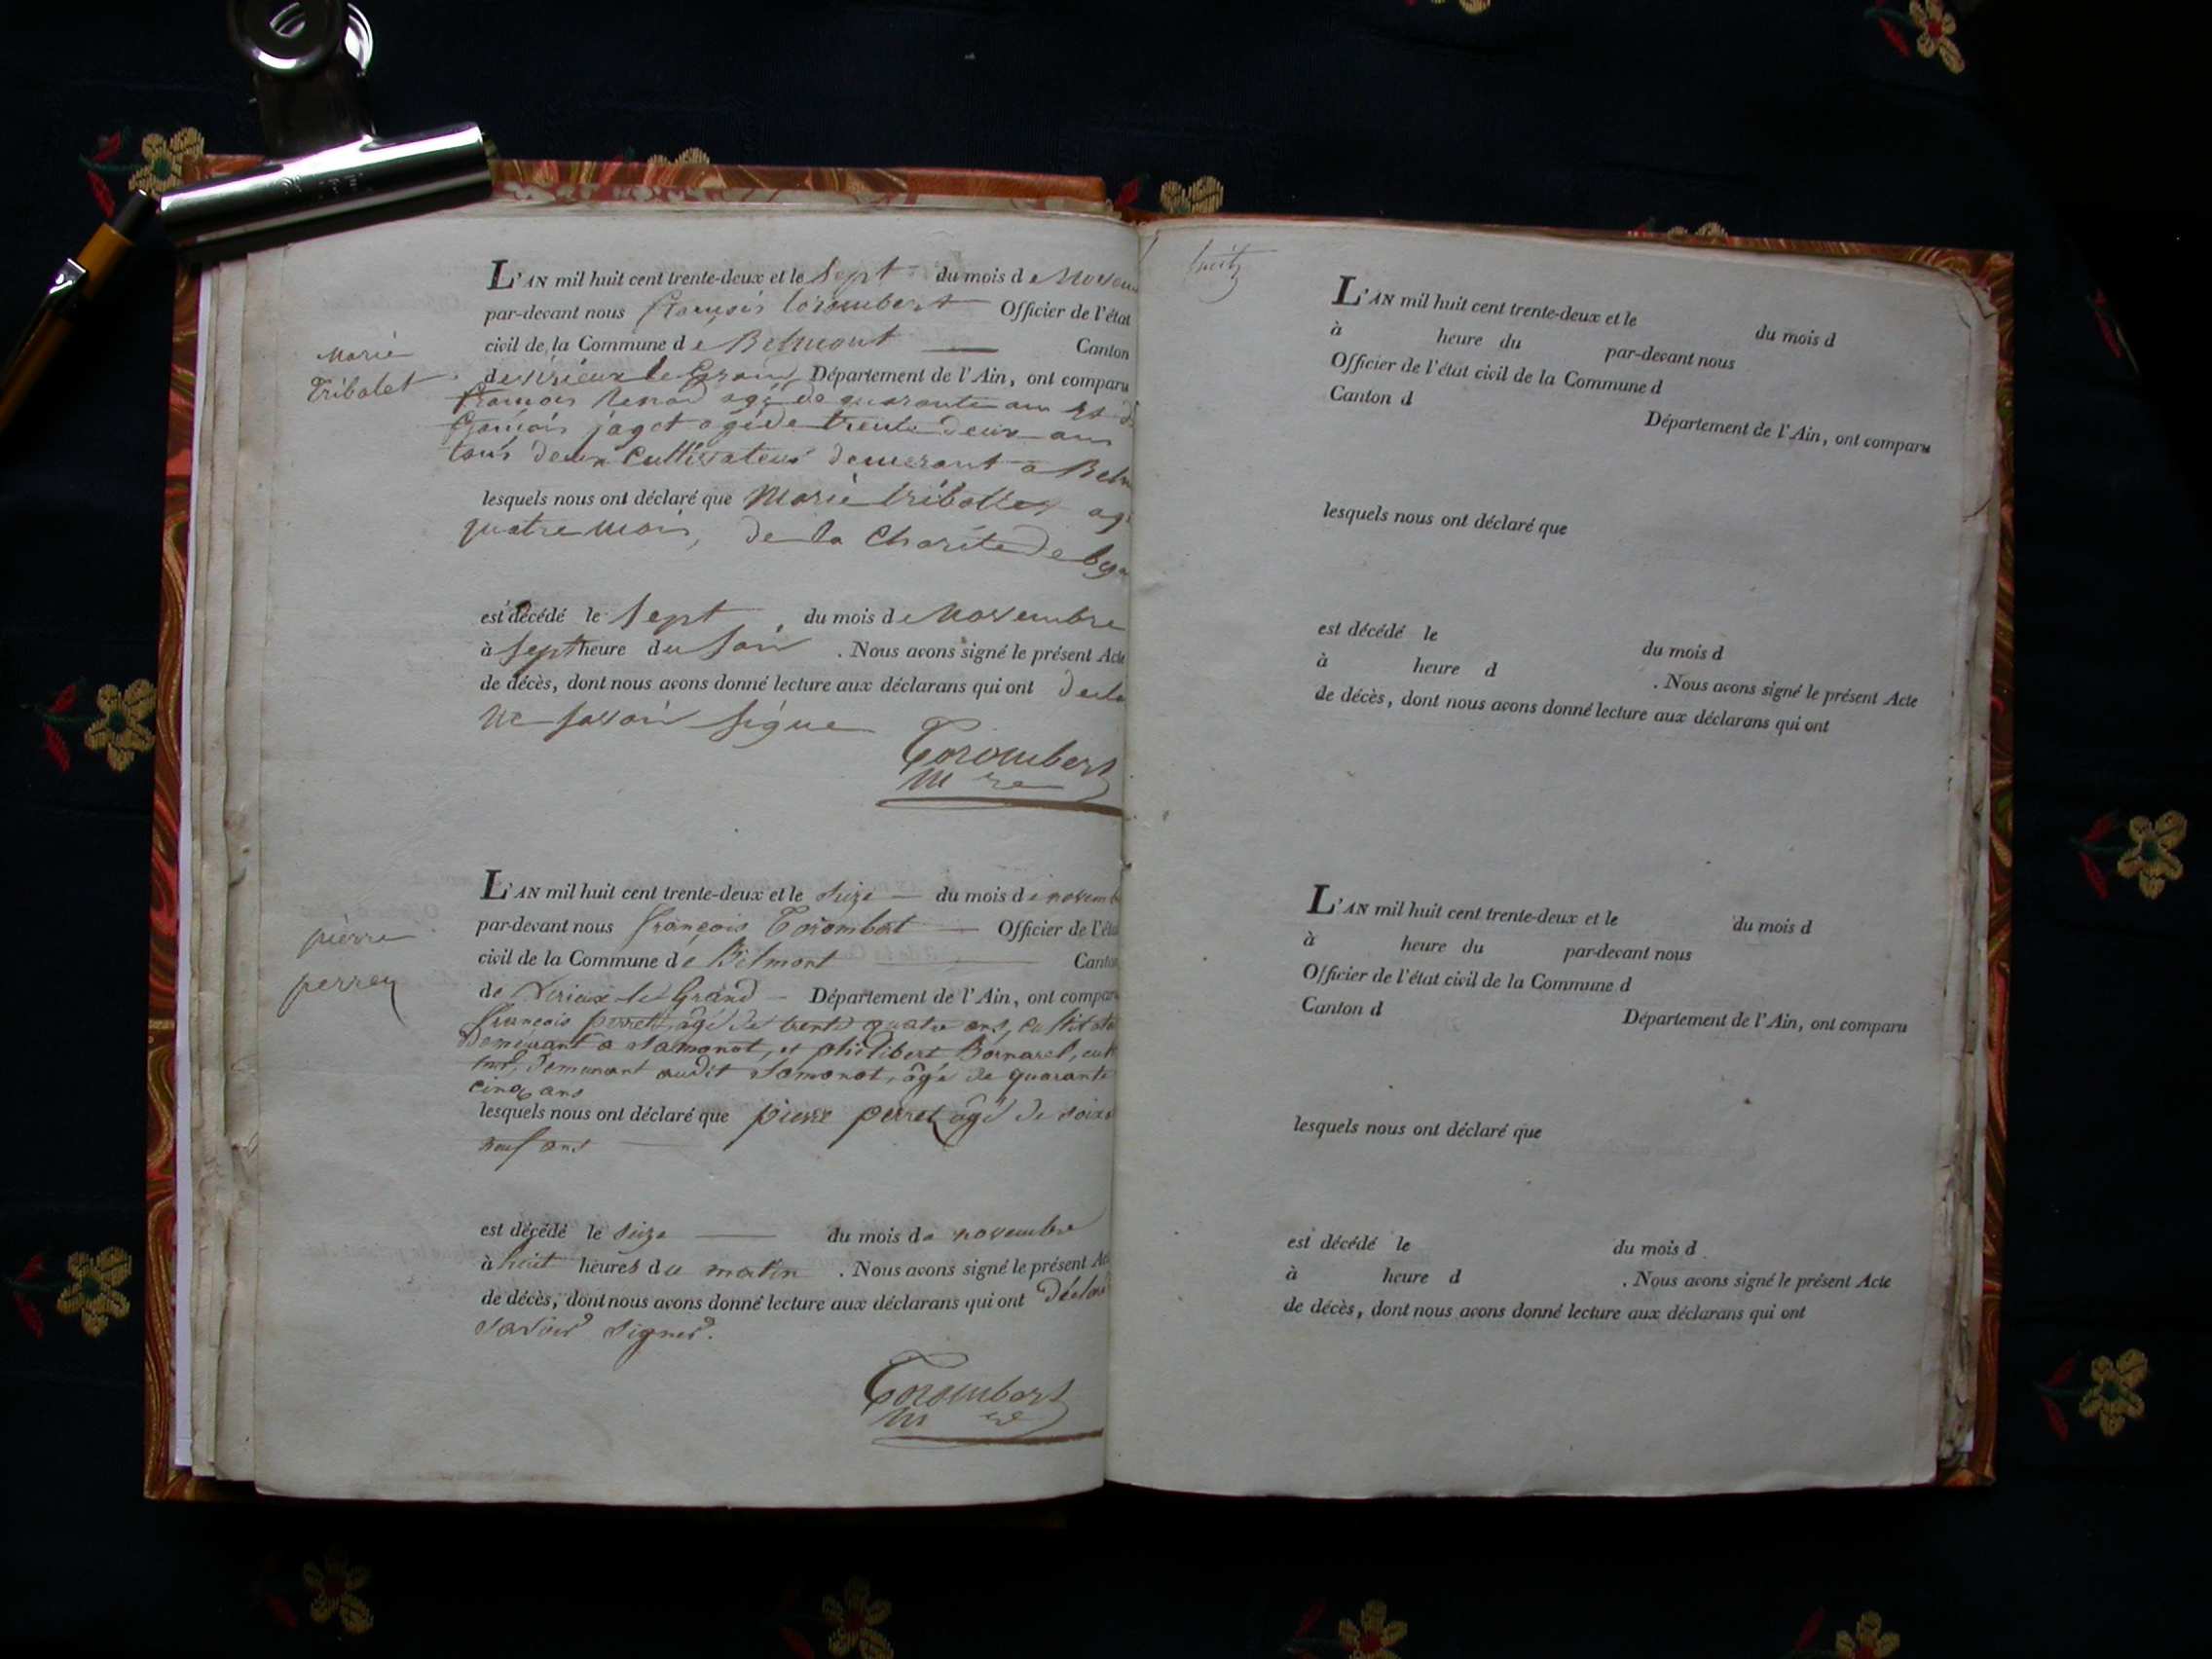 L'AN mil huit cent trente-deux et le sept du mois de Novem
par-devant nous françois torombert Officier de l'état
civil de la Commune de Belmont Canton
de virieux le Grand Département de l'Ain, ont comparu
Marie
Tribolet
françois Renard agé de quarante ans et
françois jagot agé de trente deux ans
tous deux Cultivateurs demeurant a Belm
lesquels nous ont déclaré que Marie tribollet agé
quatre mois, de la Charité de
est décédé le sept du mois de Novembre
à sept heure du soir . Nous avons signé le présent Acte
de décès, dont nous avons donné lecture aux déclarans qui ont decla
ne savoir signe
Torombert
M re
L'AN mil huit cent trente-deux et le seize du mois de novemb
par-devant nous françois Torombert Officier de l'éta
civil de la Commune de Belmont Canton
de Virieux le Grand Département de l'Ain, ont compar
pierre
perret
françois perret, âgé de trente quatre ans, cultivate
Demeurant a Samonot, et philibert Bornarel, cult
demeurant audit Samonot, âgé de quarante
cinq ans
lesquels nous ont déclaré que pierre perret âgé de soixa
neuf ans
est décédé le seize du mois de novembre
à huit heures du matin . Nous avons signé le présent Ac
de décès, dont nous avons donné lecture aux déclarans qui ont déclar
savoir signer.
Torombert
M re
L'AN mil huit cent trente-deux et le du mois d
à heure du par-devant nous
Officier de l'état civil de la Commune d
Canton d Département de l'Ain, ont comparu
lesquels nous ont déclaré que
est décédé le du mois d
à heure d . Nous avons signé le présent Acte
de décès, dont nous avons donné lecture aux déclarans qui ont
L'AN mil huit cent trente-deux et le du mois d
à heure du par-devant nous
Officier de l'état civil de la Commune d
Canton d Département de l'Ain, ont comparu
lesquels nous ont déclaré que
est décédé le du mois d
à heure d . Nous avons signé le présent Acte
de décès, dont nous avons donné lecture aux déclarans qui ont